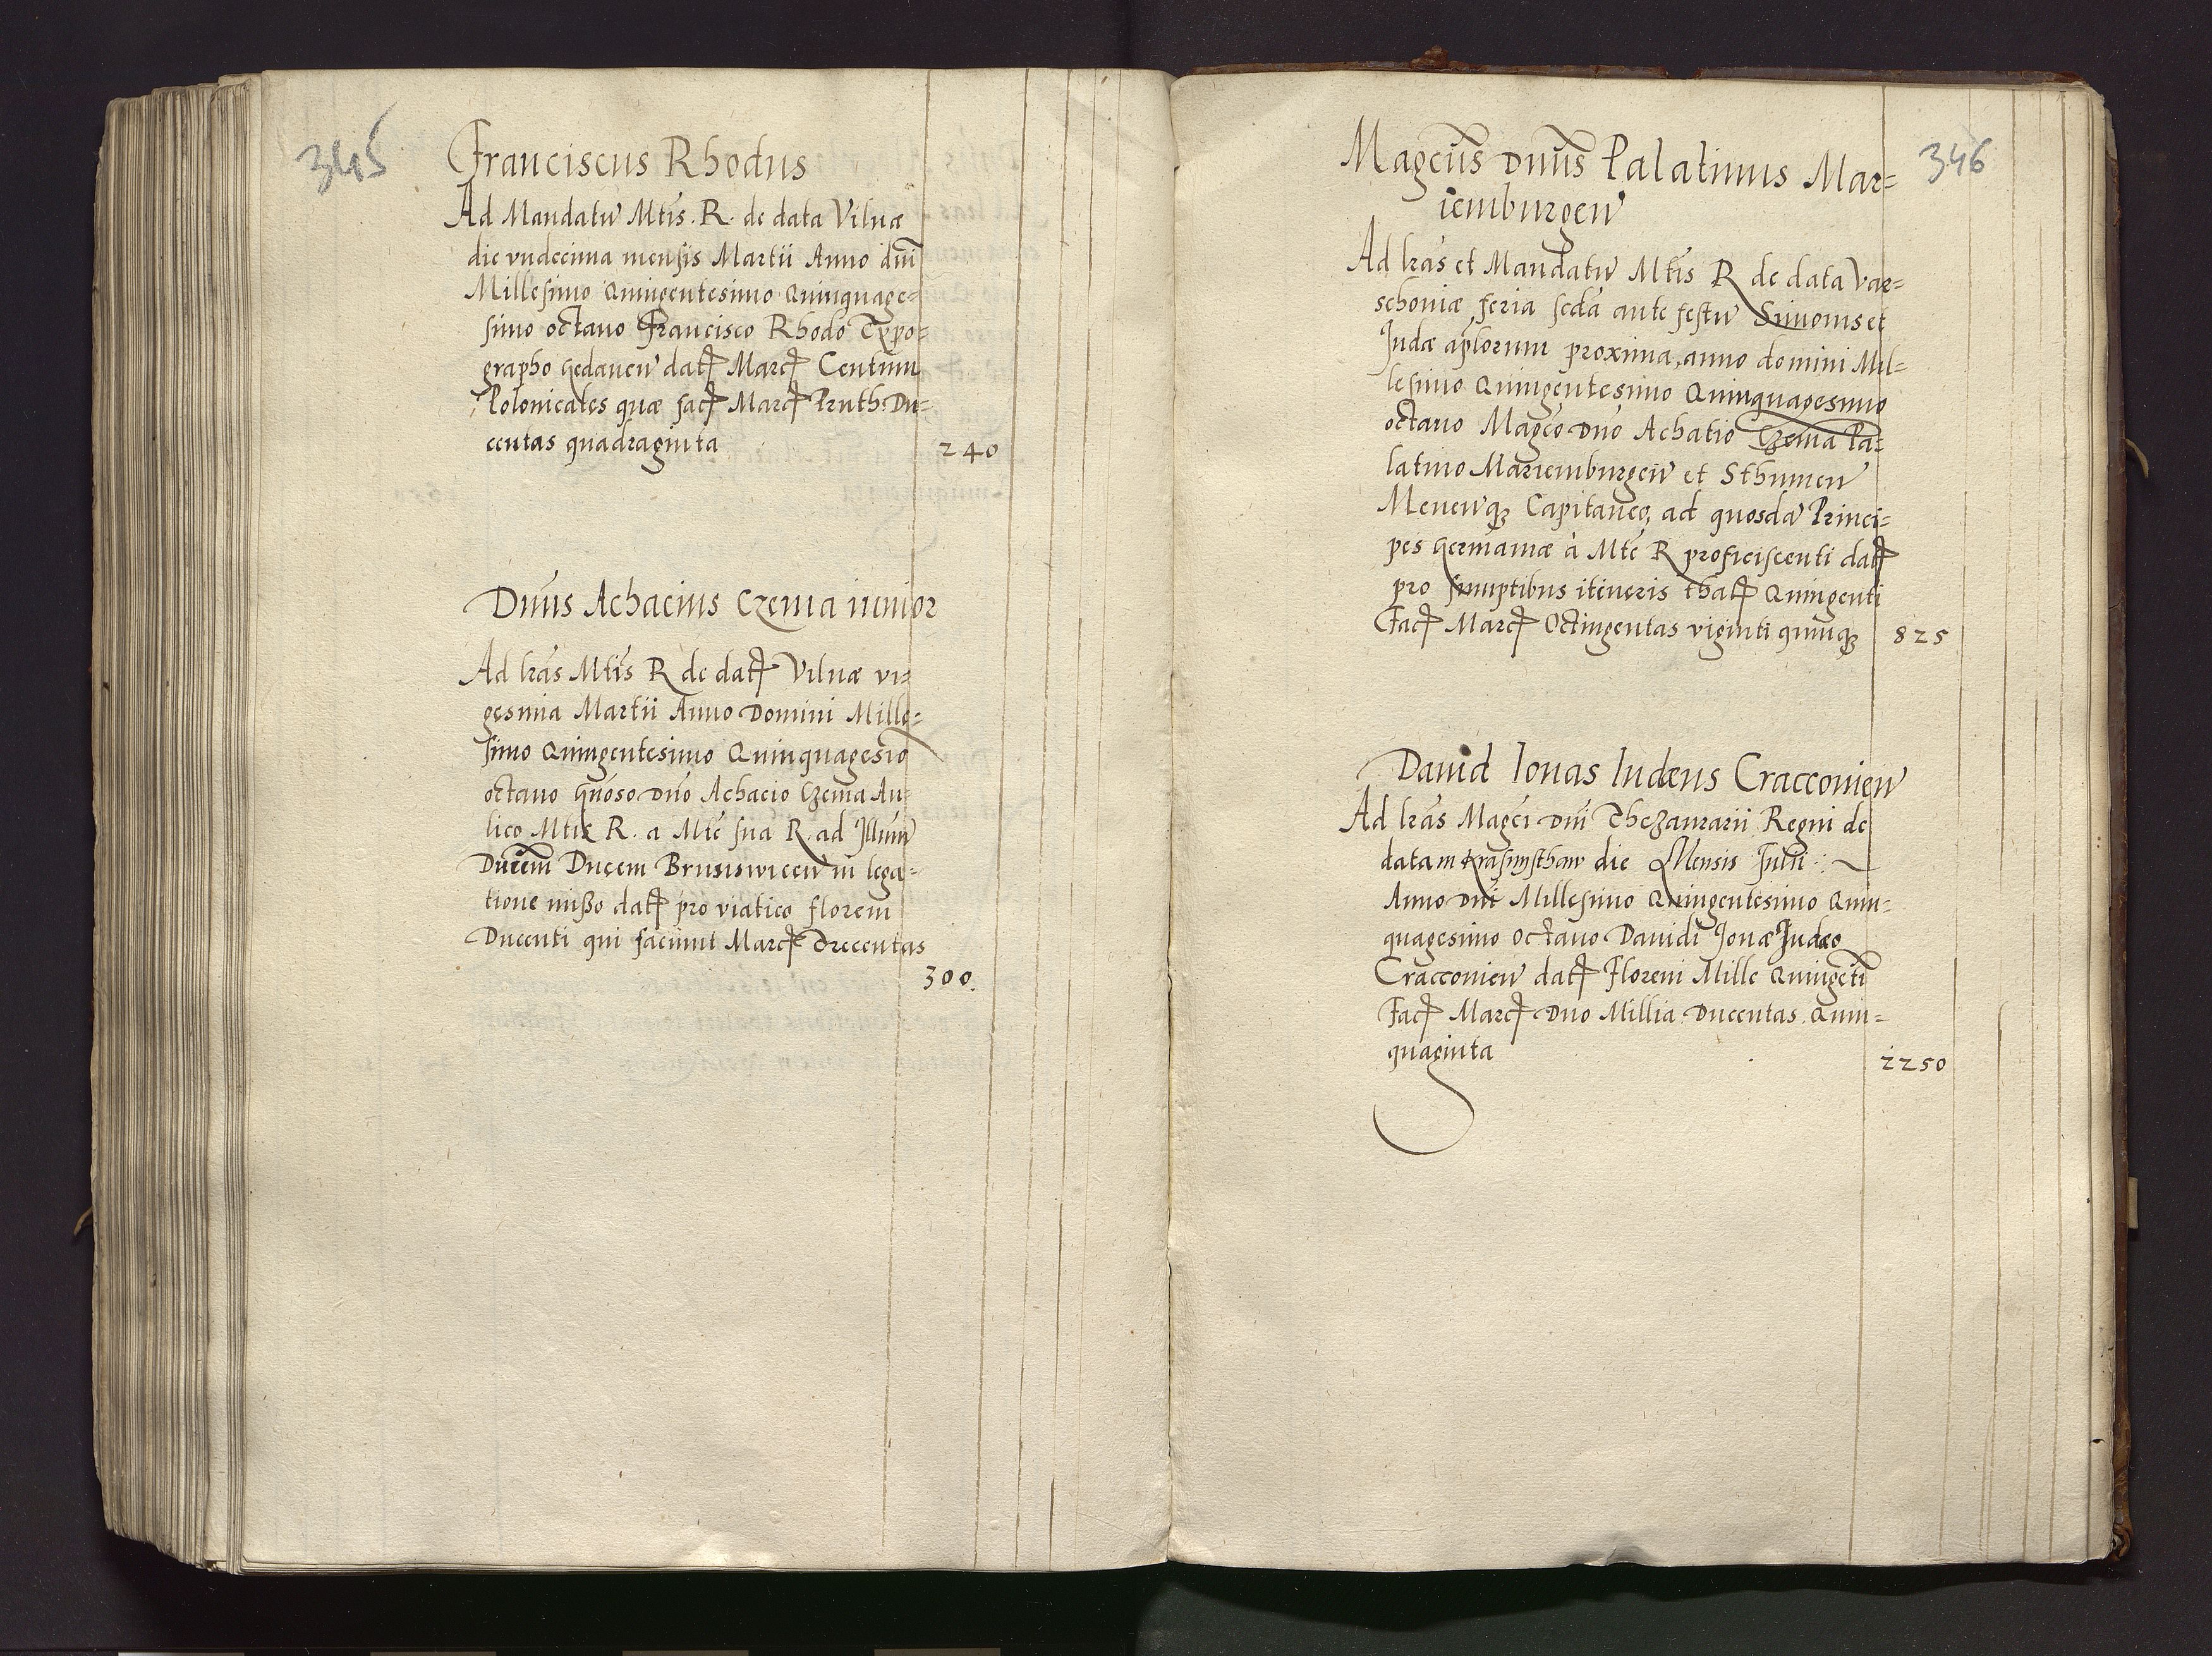 345
Franciscus Rhodus
Ad Mandatū Mtis. R. de data Vilnæ
die vndecima mensis Martii Anno dni
Millesimo Quingentesimo Quinquage=
simo octauo Francisco Rhodo Typo=
grapho Gedanen datæ Marcæ Centum
Polonicales quæ faciunt Marcas Pruth. Du=
centas quadraginta 240
Dnus Achacius Czema iunior
Ad lras Mtis R de data Vilnæ vi=
gesima Martii Anno Domini Mille=
simo Quingentesimo Quinquagesio
octauo Gnoso Dno Achacio Czema Au=
lico Mtis R. a Mte sua R. ad Illum
Ducem Ducem Brunswicen in lega=
tione misso dati pro viatico floreni
Ducenti qui faciunt Marcas Trecentas
300.
346
Magcus Dnus Palatinus Mar=
iemburgen
Ad lras et Mandatū Mtis R de data Var=
schoniæ feria scda ante festū Simonis et
Judæ aplorum proxima, anno domini Mil=
lesimo Quingentesimo Quinquagesimo
octauo Magco Dno Achatio Czema Pa=
latino Mariemburgen et Sthumen
Meuenq; Capitaneo, ad quosdā Princi=
pes Germaniæ à Mte R proficiscenti dati
pro sumptibus itineris thali Quingenti
Faciunt Marcas Octingentas viginti quinq; 825
Dauid Ionas Iudæus Cracconien
Ad lras Magci Dni Thezaurarii Regni de
data in Krasnysthaw die Mensis Iulii
Anno Dni Millesimo Quingentesimo Quin=
quagesimo octauo Dauidi Jonæ Judæo
Cracconien dati Floreni Mille Quingeti
Faciunt Marcas Duo Millia Ducentas Quin=
quaginta 2250